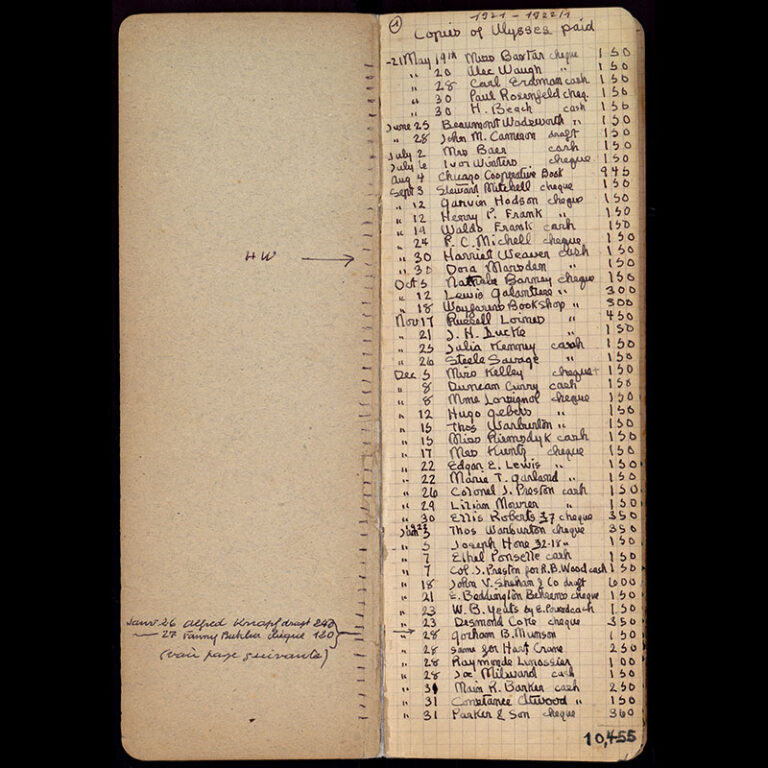 HW →
Janv. 26 Alfred Knopf draft 240
— 27 Fanny Butcher chèque 120
(voir page suivante)
1
1921 - 1922/1
Copies of Ulysses paid
-21 May 19th Miss Baxtar cheque 150
" 20 Alec Waugh " 150
" 28 Carl Erdman cash 150
" 30 Paul Rosenfeld cheq. 150
" 30 H. Beach cash 150
June 25 Beaumont Wadsworth " 150
" 28 John M. Cameron draft 150
July 2 Mrs Baer cash 150
July 6 Ivor Winters cheque 150
Aug 4 Chicago Cooperative Book 945
Sept 3 Steward Mitchell cheque 150
" 12 Garvin Hodson cheque 150
" 12 Henry P. Frank " 150
" 19 Waldo Frank cash 150
" 24 P. C. Michell cheque 150
" 30 Harriet Weaver cash 150
" 30 Dora Marsden " 150
Oct 5 Nathalie Barney cheque 150
" 12 Lewis Galantiere " 300
" 18 Wayfarers Bookshop " 300
Nov 17 Russell Loines " 450
" 21 J. H. 150
" 25 Julia Kenney cash 150
" 26 Steele Savage " 150
Dec 5 Miss Kelley cheque 150
" 8 Duncan Curry cash 150
" 8 Mme Lossignol cheque 150
" 12 Hugo Gebers " 150
" 15 Thos Warburton " 150
" 15 Miss Riemsdyk cash 150
" 17 Mrs Kuntz cheque 150
" 22 Edgar E. Lewis " 150
" 22 Marie T. Garland " 150
" 26 Colonel J. Preston cash 150
" 29 Lilian Mowrer " 150
" 30 Ellis Roberts 37 cheque 350
1922
Jan 3 Thos Warburton cheque 350
" 5 Joseph Hone 32-18 " 150
" 7 Ethel Ponselle cash 150
" 7 Col. J. Preston for R.B. Wood cash 150
" 18 John V. Sheehan & Co draft 600
" 21 E. Beddington Behrens cheque 150
" 23 W. B. Yeats by E. Pound cash 150
" 23 Desmond Coke cheque 350
→ " 28 Gorham B. Munson 150
" 28 same for Hart Crane 250
" 28 Raymonde Linossier 100
" 28 Joe Milward cash 150
" 31 Main R. Barker cash 250
" 31 Constance Atwood " 150
" 31 Parker & Son cheque 360
10,455